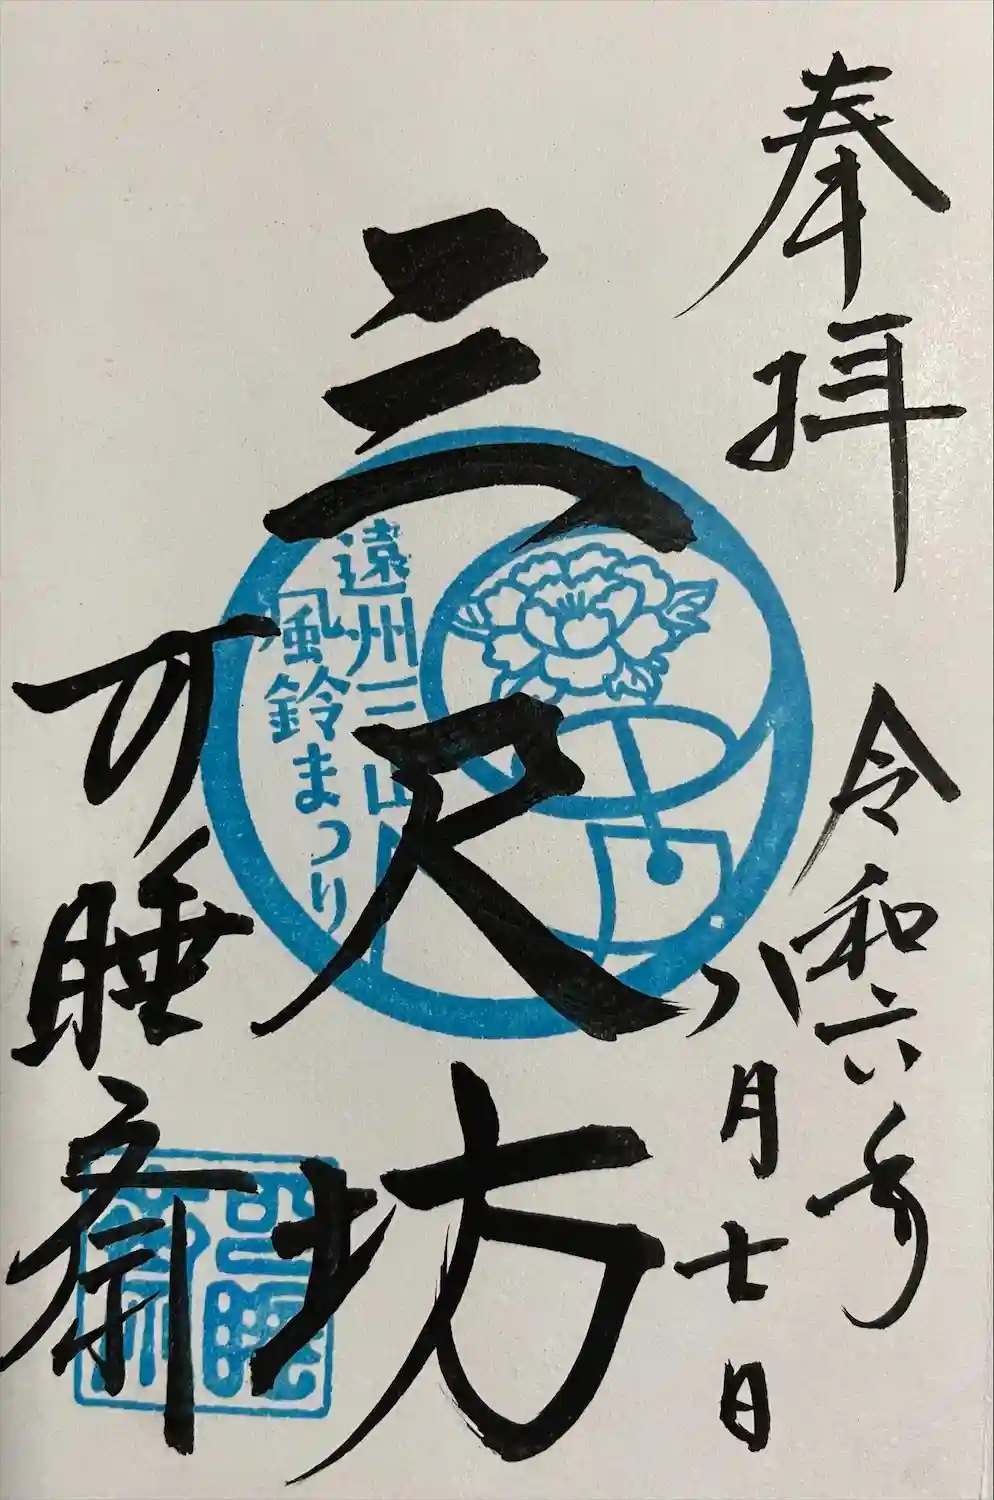 奉拝
令和六年
八月七日
三尺坊
遠州三山
風鈴まつり
可睡斎
可睡斎